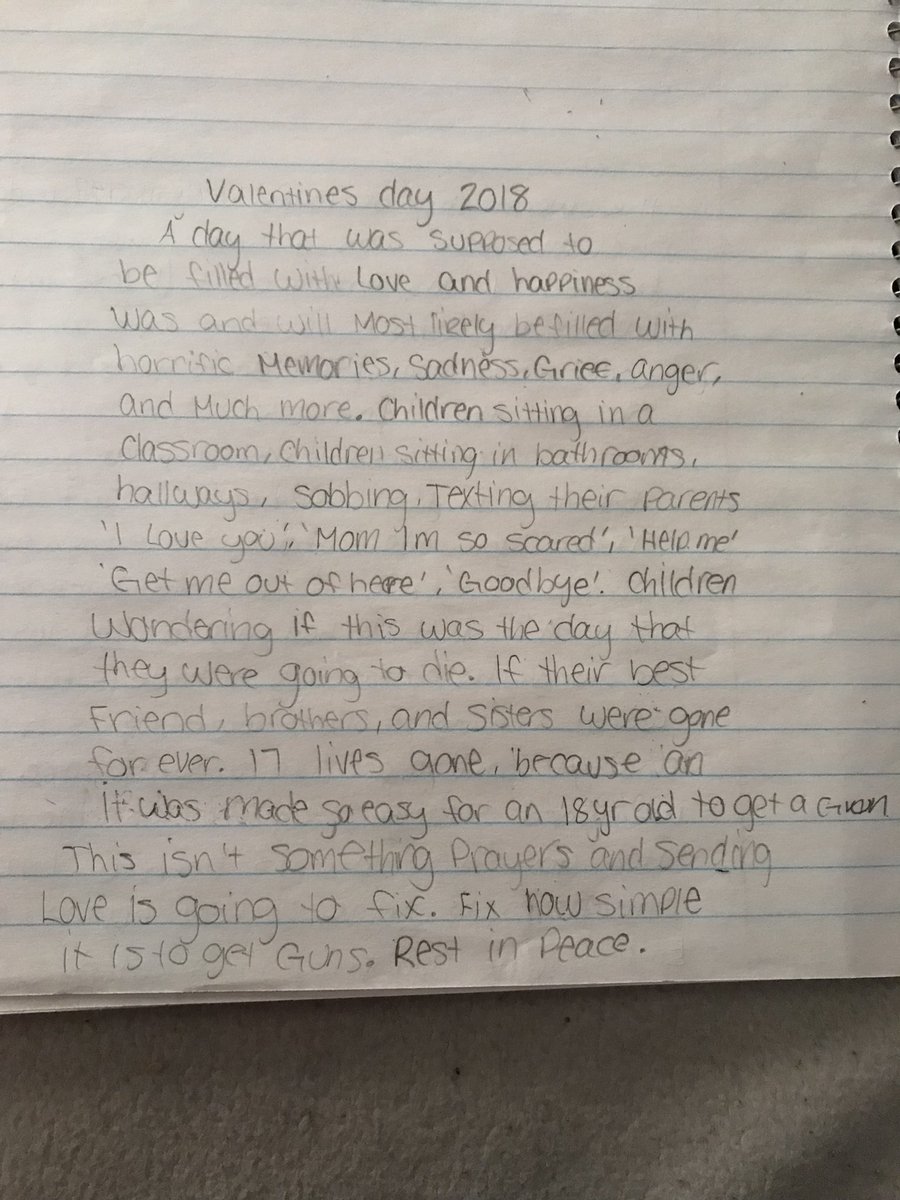 Valentines day 2018
A day that was supposed to
be filled with Love and happiness
was and will Most likely be filled with
horrific Memories, Sadness, Grief, anger,
and Much more. Children sitting in a
Classroom, Children sitting in bathrooms,
hallways, Sobbing, Texting their Parents
'I Love you', 'Mom I'm so scared', 'Help me'
'Get me out of here', 'Goodbye'. Children
Wondering if this was the day that
they were going to die. If their best
Friend, brothers, and Sisters were gone
for ever. 17 lives gone, because an
it was made so easy for an 18yr old to get a Gun
This isn't something Prayers and Sending
Love is going to fix. Fix how simple
it is to get Guns. Rest in Peace.